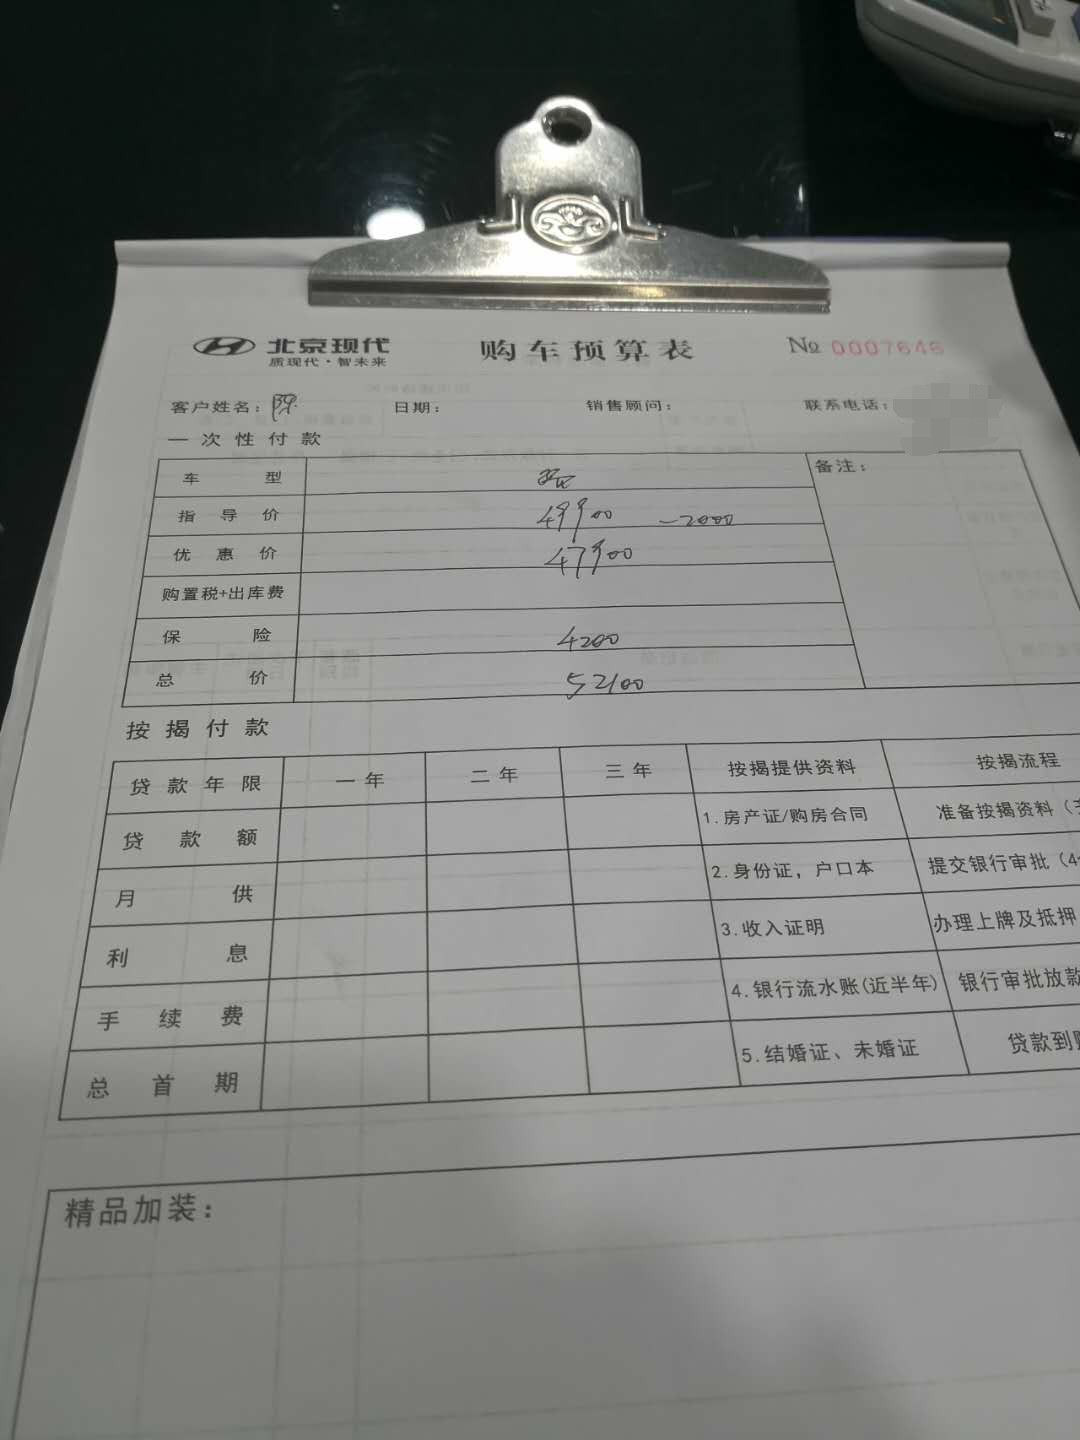 北京现代 购车预算表 № 0007646
质现代·智未来
客户姓名： 日期： 销售顾问： 联系电话：
一次性付款
车型 备注：
指导价 49900 -2000
优惠价 47900
购置税+出库费
保险 4200
总价 52100
按揭付款
贷款年限 一年 二年 三年 按揭提供资料 按揭流程
贷款额 1.房产证/购房合同 准备按揭资料（
月供 2.身份证，户口本 提交银行审批（4
利息 3.收入证明 办理上牌及抵押
手续费 4.银行流水账(近半年) 银行审批放款
总首期 5.结婚证、未婚证 贷款到
精品加装：